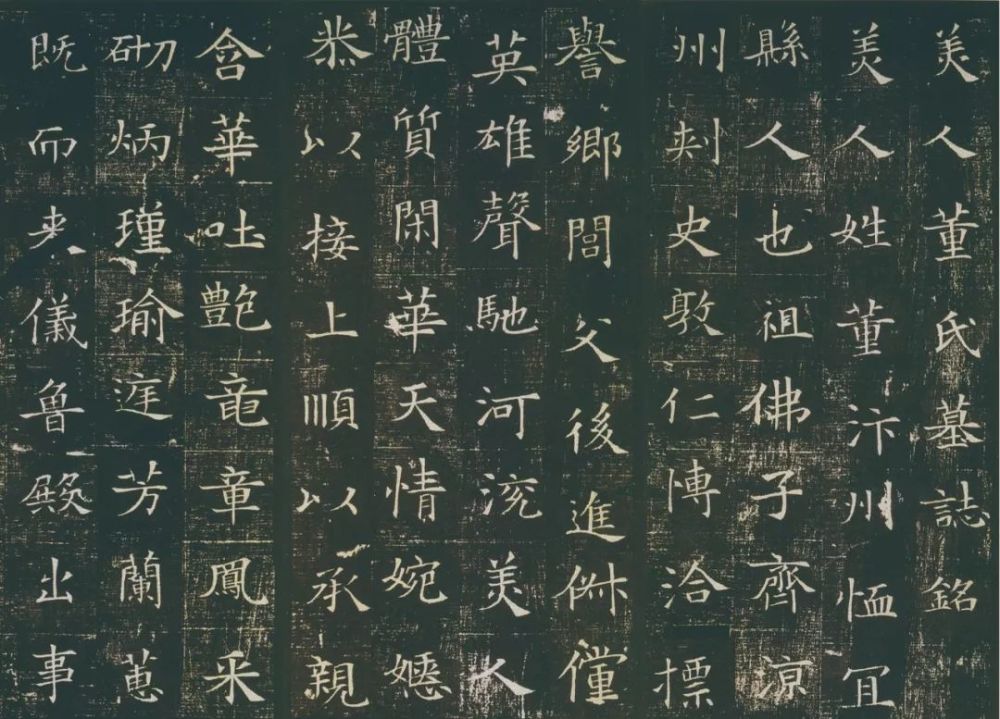 美人董氏墓誌銘
美人姓董汴州恤宜
縣人也祖佛子齊涼
州刺史敦仁博洽標
譽鄉閭父後進俶儻
英雄聲馳河渷美人
體質閑華天情婉嫕
恭以接上順以承親
含華吐艷竜章鳳采
砌炳瑾瑜庭芳蘭蕙
既而来儀魯殿出事